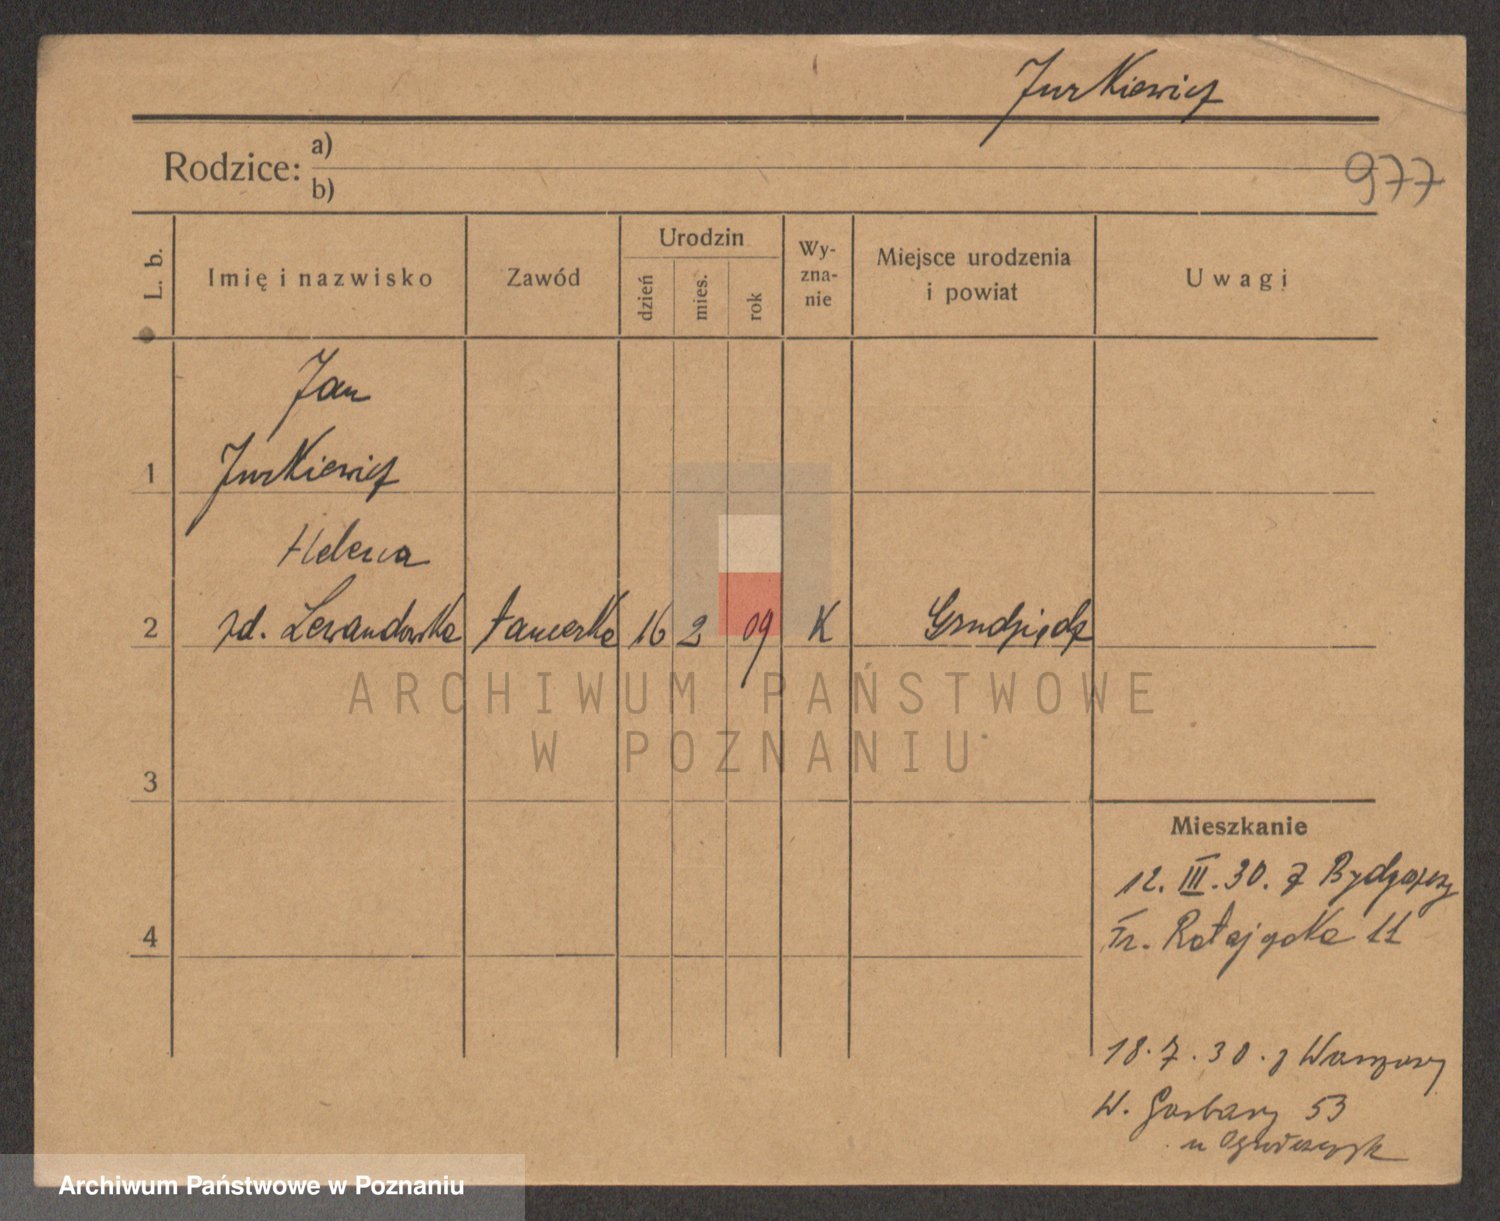 Jurkiewicz
Rodzice: a)
b)
977
L. b.
Imię i nazwisko
Zawód
Urodzin
dzień
mies.
rok
Wy-
zna-
nie
Miejsce urodzenia
i powiat
Uwagi
Jan
1 Jurkiewicz
Helena
2 zd. Lewandowska tancerka 16 2 09 K Grudziądz
ARCHIWUM PAŃSTWOWE
W POZNANIU
3
Mieszkanie
12. III. 30. z Bydgoszczy
4
Fr. Ratajczaka 11
18. 7. 30. z Warszawy
W. Garbary 53
u
Archiwum Państwowe w Poznaniu